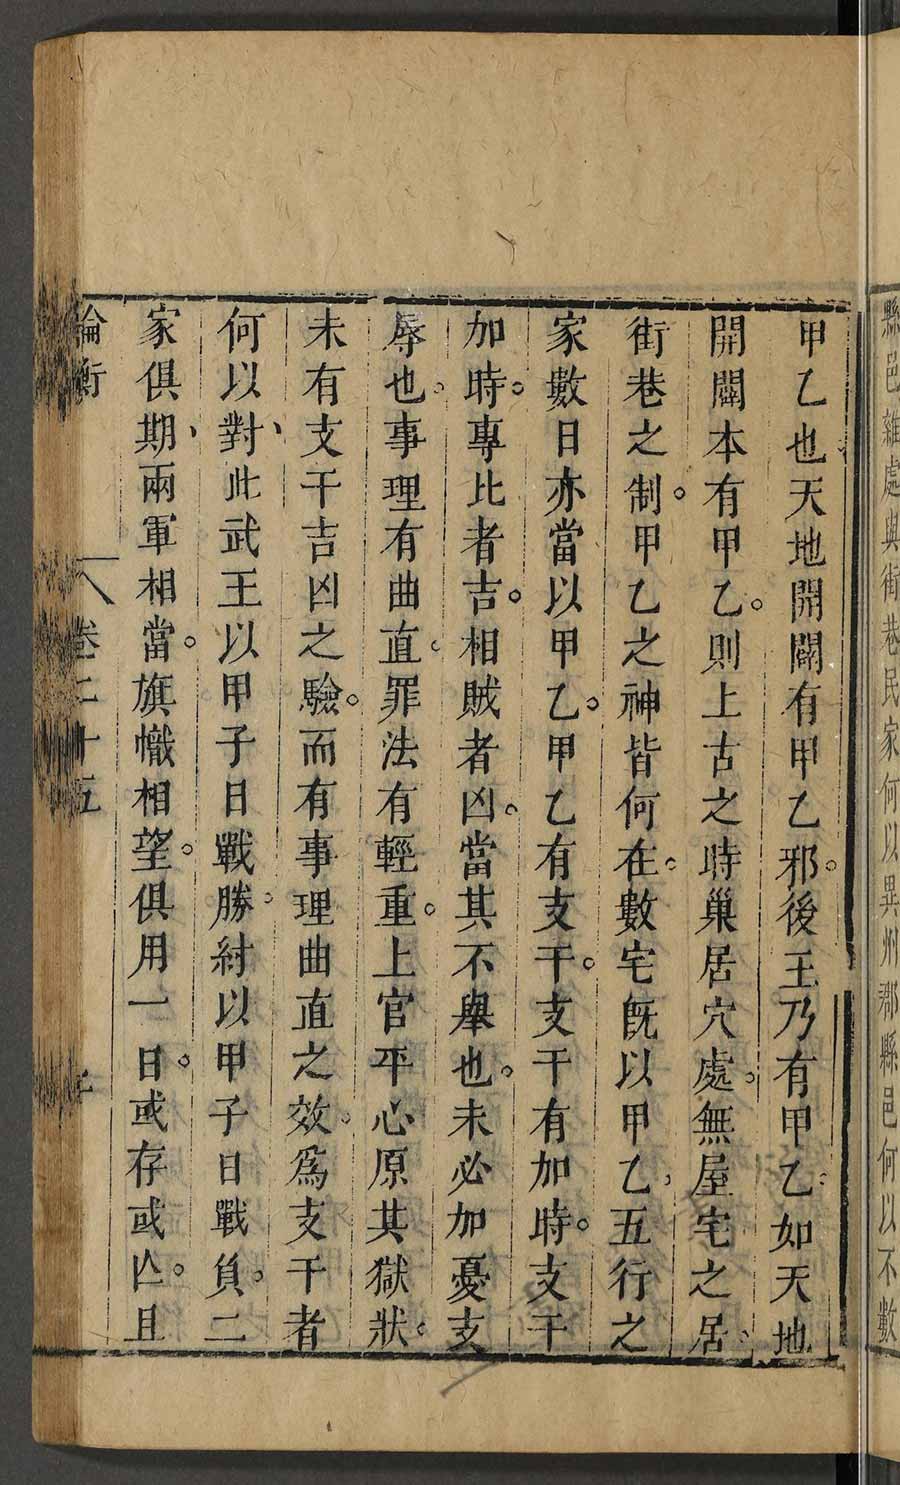 縣邑雜處與街巷民家何以異州郡縣邑何以不數
甲乙也天地開闢有甲乙邪。後王乃有甲乙。如天地
開闢本有甲乙。則上古之時巢居穴處。無屋宅之居、
街巷之制。甲乙之神皆何在。數宅既以甲乙、五行之
家數日亦當以甲乙。甲乙有支干。支干有加時。支干
加時。專比者吉。相賊者凶。當其不舉也。未必加憂支
辱也。事理有曲直。罪法有輕重。上官平心原其獄狀。
未有支干吉凶之驗。而有事理曲直之效。爲支干者
何以對、此武王以甲子日戰勝。紂以甲子日戰負。二
家俱期、兩軍相當。旗幟相望。俱用一日。或存或亾。且
論衡 卷二十五